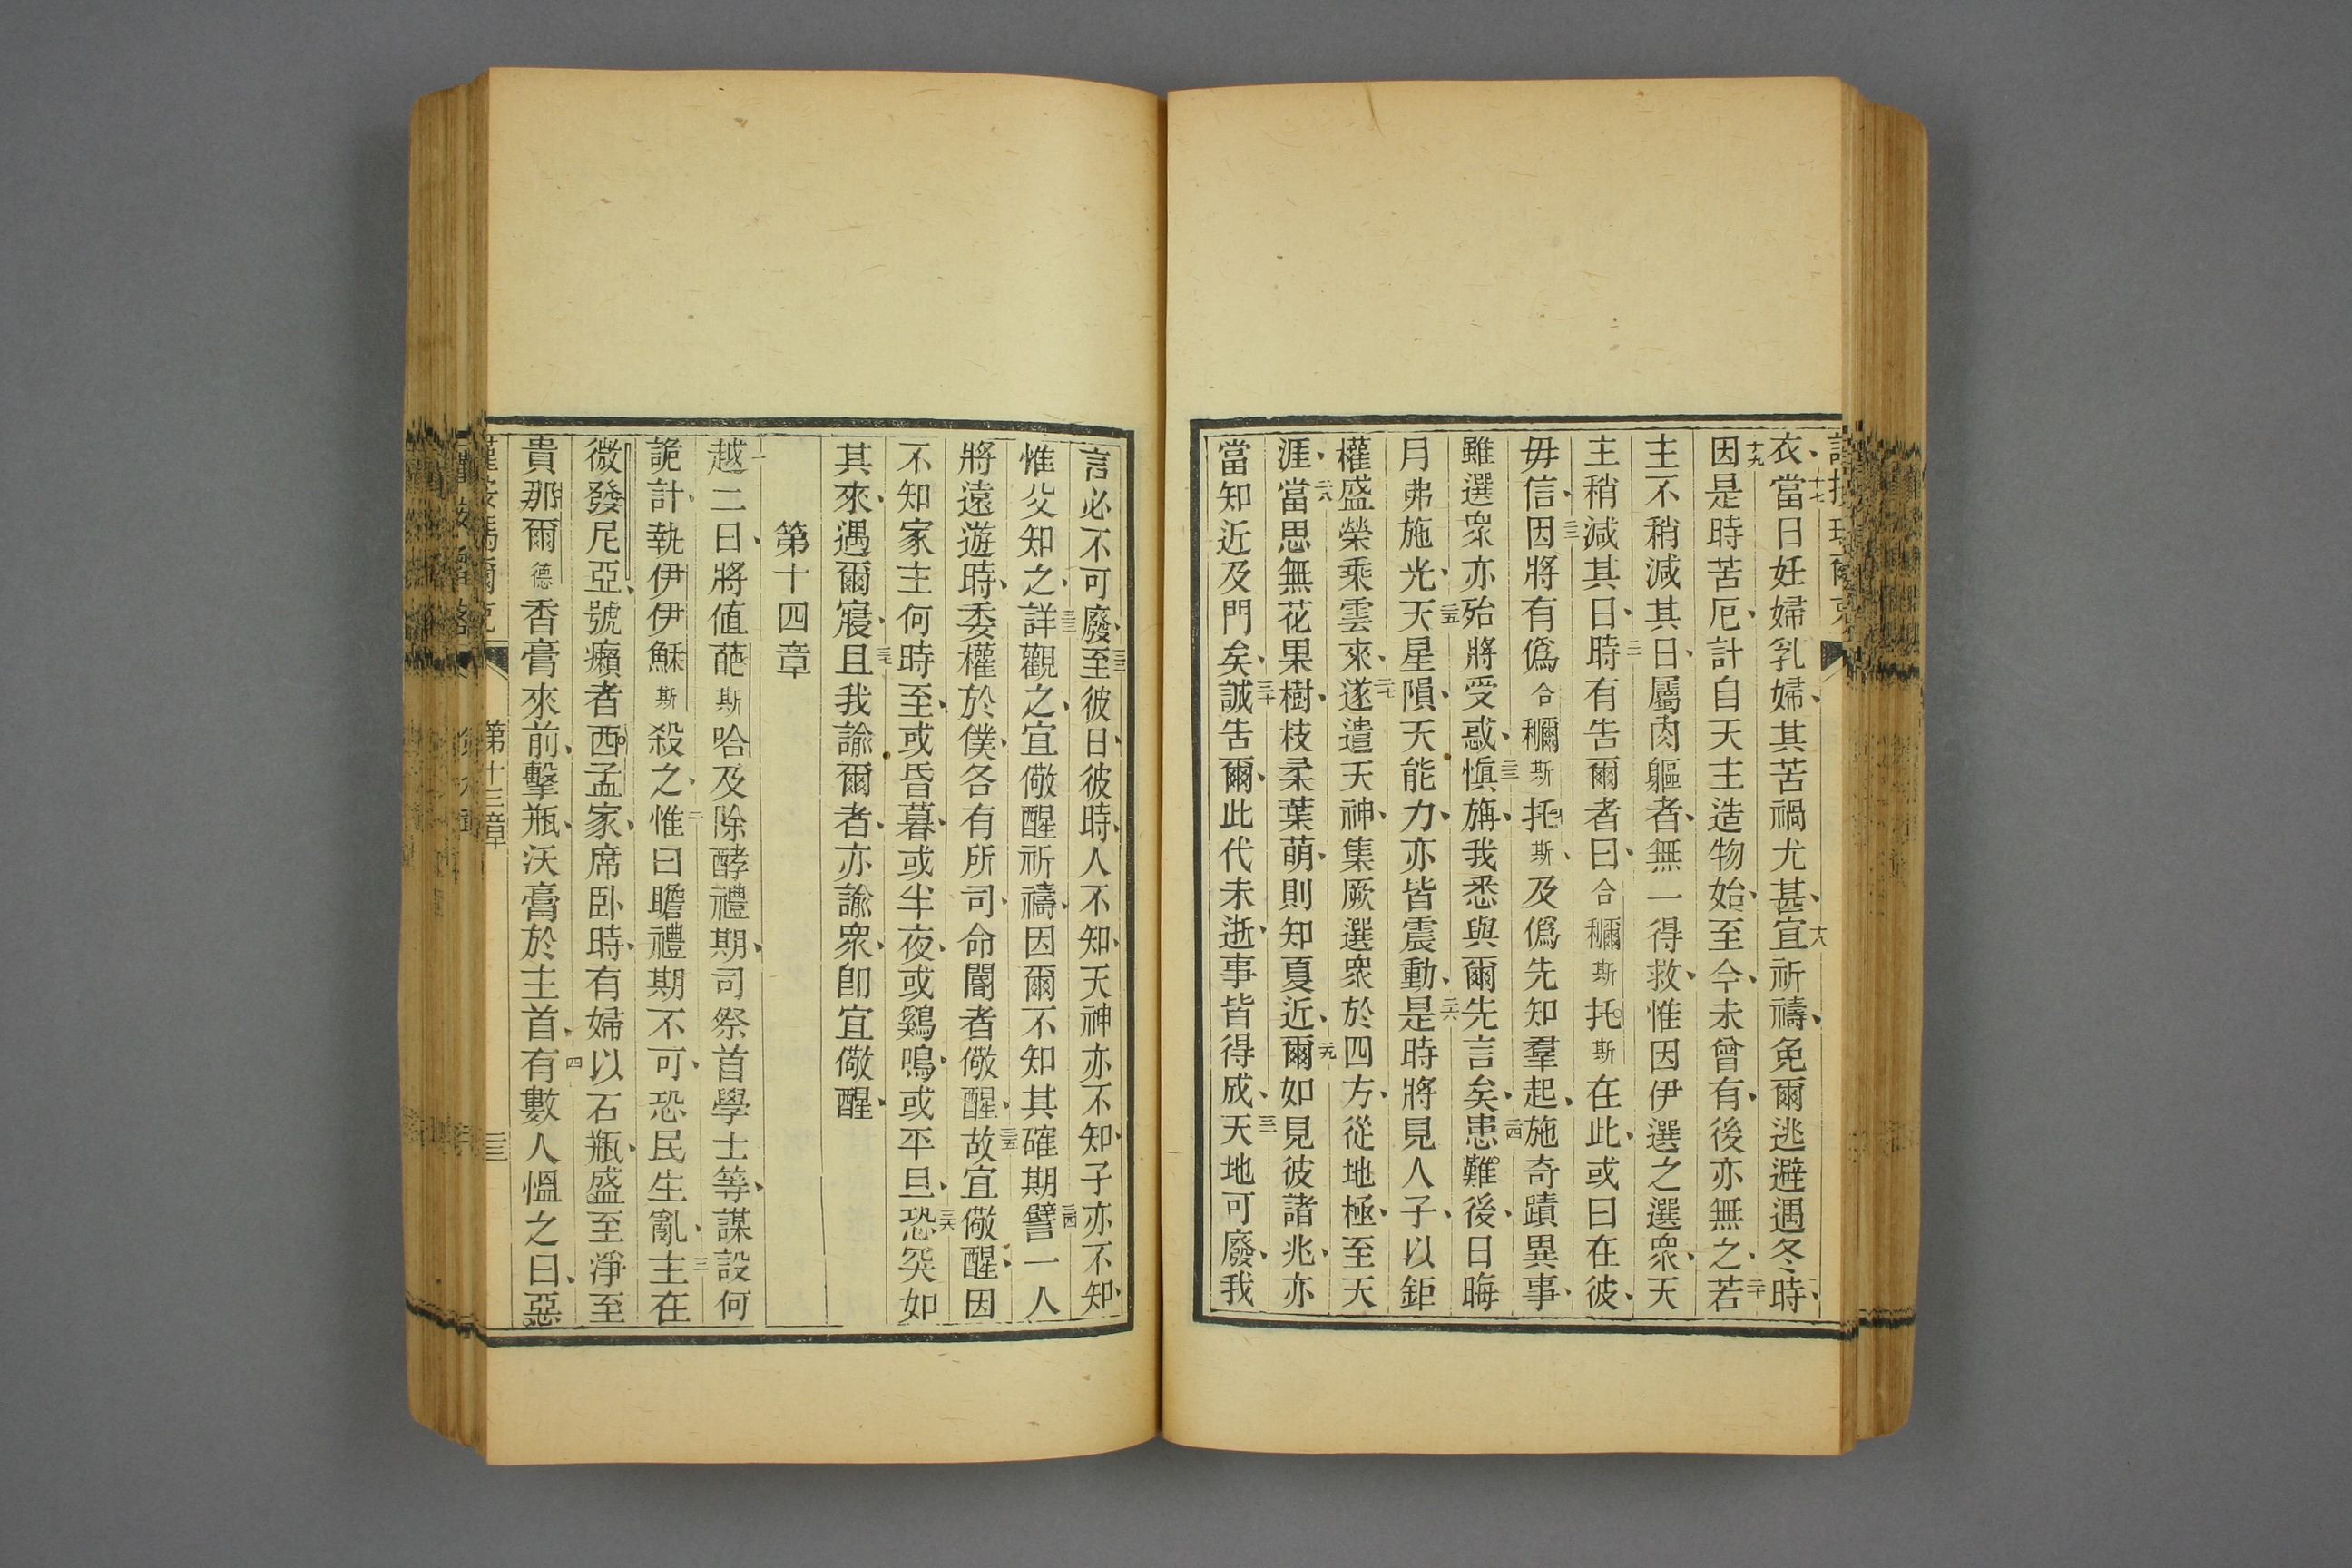 衣、十七當日妊婦乳婦、其苦禍尤甚、十八宜祈禱、免爾逃避遇冬時、
十九因是時苦厄、計自天主造物始、至今、未曾有、後亦無之、二十若
主不稍減其日、屬肉軀者、無一得救、惟因伊選之選衆、天
主稍減其日、二一時有告爾者曰、合穪斯托斯在此、或曰在彼、
毋信、二二因將有僞合穪斯托斯、及僞先知羣起、施奇蹟異事、
雖選衆亦殆將受惑、二三愼旃、我悉與爾先言矣、二四患難後、日晦
月弗施光、二五天星隕、天能力、亦皆震動、二六是時將見人子、以鉅
權盛榮乘雲來、二七遂遣天神、集厥選衆於四方、從地極、至天
涯、二八當思無花果樹、枝柔葉萌、則知夏近、二九爾如見彼諸兆、亦
當知近及門矣、三十誠吿爾、此代未逝、事皆得成、三一天地可廢、我
言必不可廢、三二至彼日、彼時、人不知、天神亦不知、子亦不知、
惟父知之、三三詳觀之、宜儆醒祈禱、因爾不知其確期、三四譬一人
將遠遊時、委權於僕、各有所司、命閽者儆醒、三五故宜儆醒、因
不知家主何時至、或昏暮、或半夜、或鷄鳴、或平旦、三六恐突如
其來、遇爾寢、三七且我諭爾者、亦諭衆、卽宜儆醒、
第十四章
一越二日、將値葩斯哈及除酵禮期、司祭首學士等、謀設何
詭計、執伊伊穌斯殺之、二惟曰瞻禮期不可、恐民生亂、三主在
微發尼亞、號癩者西孟家、席卧時、有婦以石瓶、盛至淨至
貴那爾德香膏來前、擊瓶、沃膏於主首、四有數人慍之曰、惡
第十三章
三三